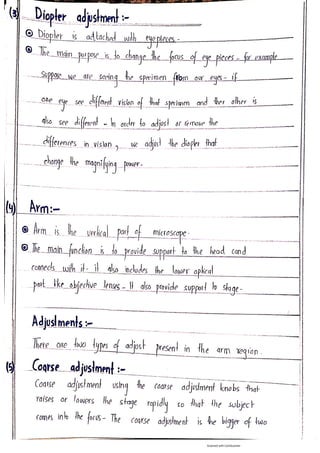 (3) Diopter adjustment :-
Diopter is attached with eyepieces -
The main purpose is to change the focus of eye pieces - for example
Suppose we are seeing the specimen from our eyes - if
one eye see different vision of that specimen and ther other is
also see different - In order to adjust or remove the
differences in vision, we adjust the diopter that
change the magnifying power -
(4) Arm :-
Arm is the vertical part of microscope -
The main function is to provide support to the head and
connects with it - it also includes the lower optical
part like objective lenses - It also provide support to stage -
Adjustments :-
There are two types of adjust present in the arm region
(5) Coarse adjustment :-
Coarse adjustment using the coarse adjustment knobs that
raises or lowers the stage rapidly so that the subject
comes into the focus - The coarse adjustment is the bigger of two
Scanned with CamScanner